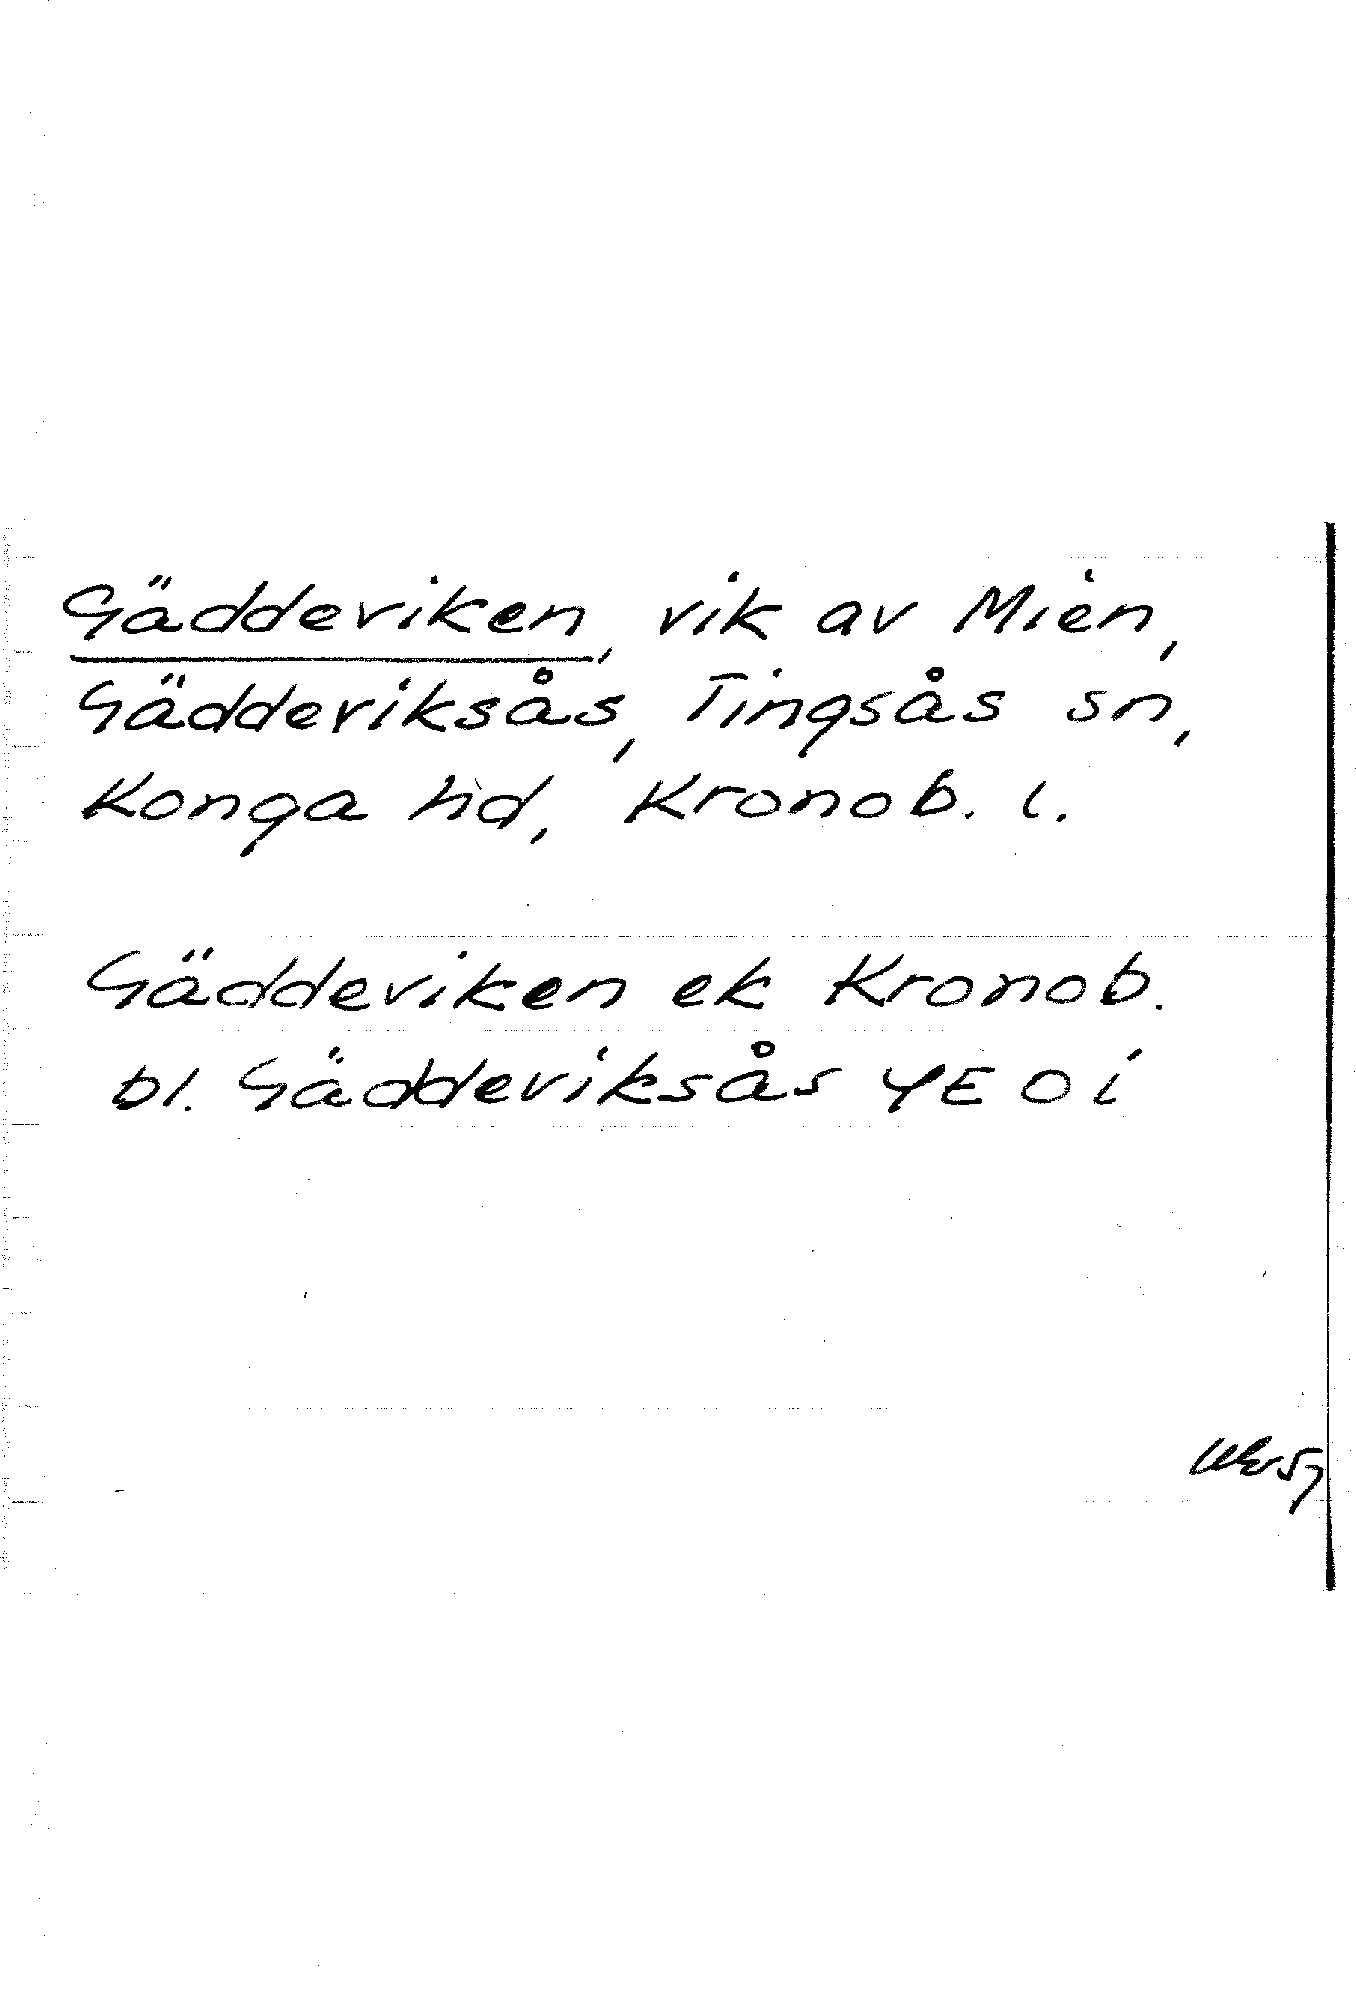 Gäddeviken, vik av Mien,
Gäddeviksås, Tingsås sn,
Konga hd, Kronob. l.
Gäddeviken ek Kronob.
bl. Gäddeviksås 4E 0i